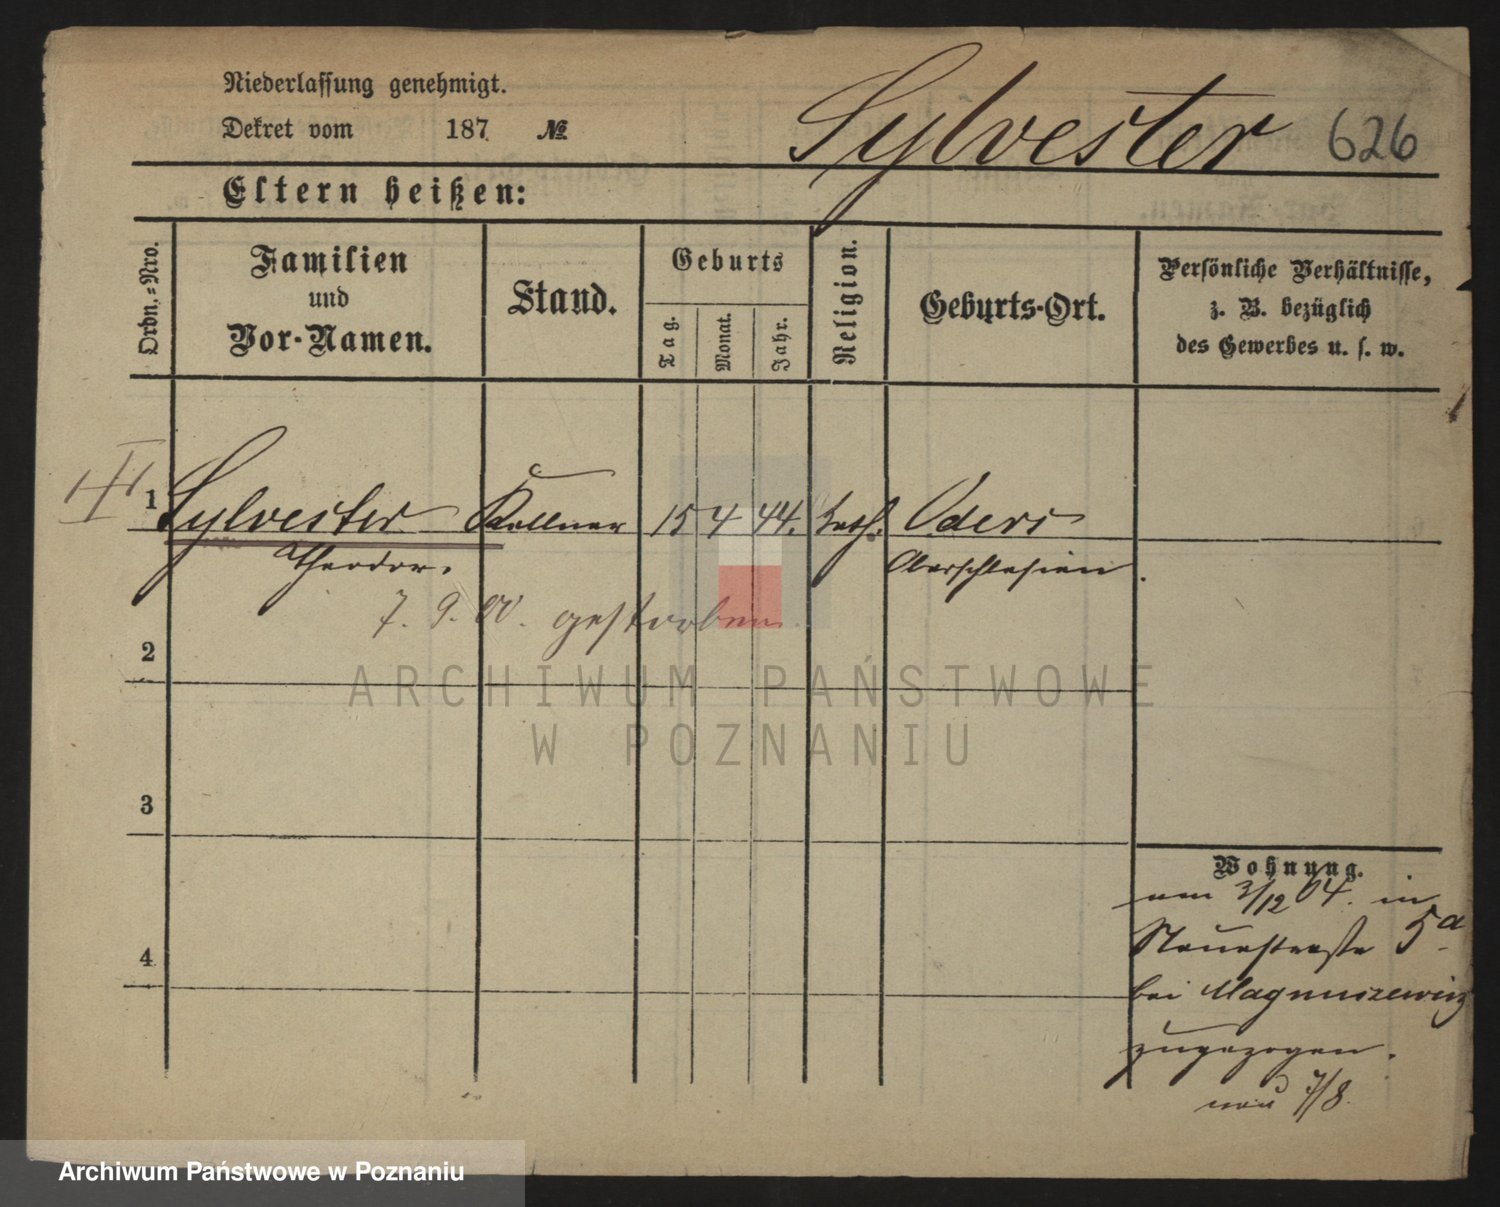 Niederlassung genehmigt.
Dekret vom 187 №
Sylvester 626
Eltern heißen:
Ordn.-Nro.
Familien
und
Vor-Namen.
Stand.
Geburts
Tag.
Monat.
Jahr.
Religion.
Geburts-Ort.
Persönliche Verhältnisse,
z. B. bezüglich
des Gewerbes u. s. w.
1 Sylvester Kellner 15 4 44. kath. Oders
Theodor. Oberschlesien.
7. 9. 00. gestorben
2
ARCHIWUM PAŃSTWOWE
W POZNANIU
3
Wohnung.
am 3/12 04. in
4
Neuestraße 5a
bei Magnuszewicz
zugezogen.
7/8.
Archiwum Państwowe w Poznaniu